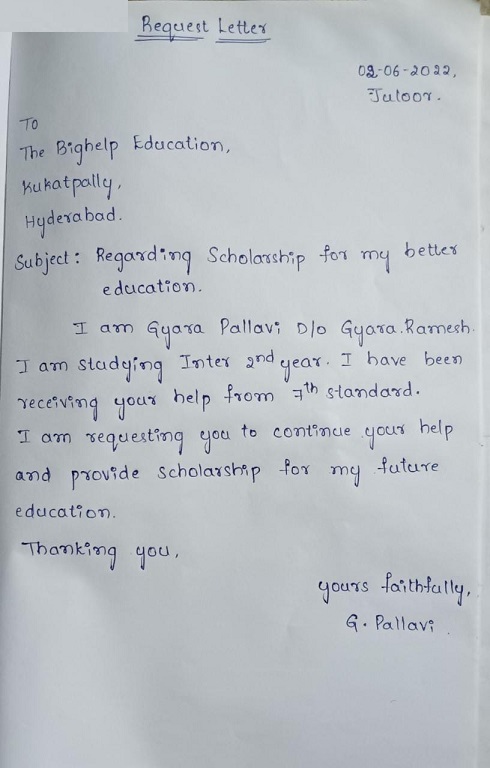 Request Letter
02-06-2022,
Juloor.
To
The Bighelp Education,
Kukatpally,
Hyderabad.
Subject: Regarding Scholarship for my better
education.
I am Gyara Pallavi D/o Gyara.Ramesh.
I am studying Inter 2nd year. I have been
receiving your help from 7th standard.
I am requesting you to continue your help
and provide scholarship for my future
education.
Thanking you,
yours faithfully,
G. Pallavi